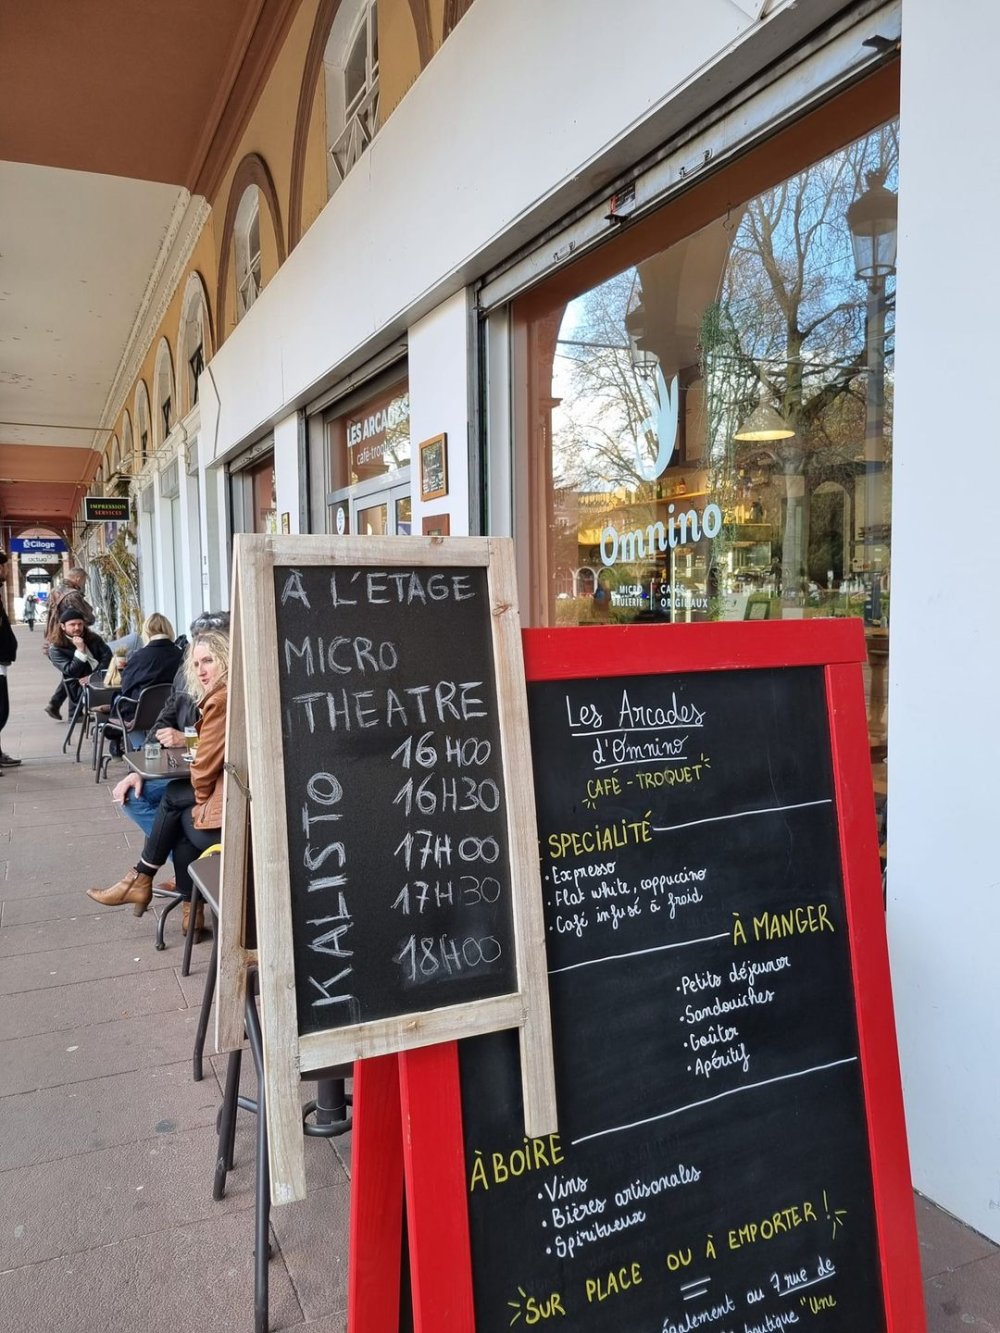 À L'ETAGE
MICRO
THEATRE
KALISTO
16H00
16H30
17H00
17H30
18H00
Les Arcades
d'Omnino
CAFÉ - TROQUET
SPECIALITÉ
• Expresso
• Flat white, cappuccino
• Café infusé à froid
À MANGER
• Petits déjeuner
• Sandwiches
• Goûter
• Apéritif
À BOIRE
• Vins
• Bières artisanales
• Spiritueux
SUR PLACE OU À EMPORTER !
également au 7 rue de
boutique "Une
Omnino
MICRO
BRULERIE
CAFÉS
ORIGINAUX
LES ARCADES
café-troquet
IMPRESSION
SERVICES
Ciloge